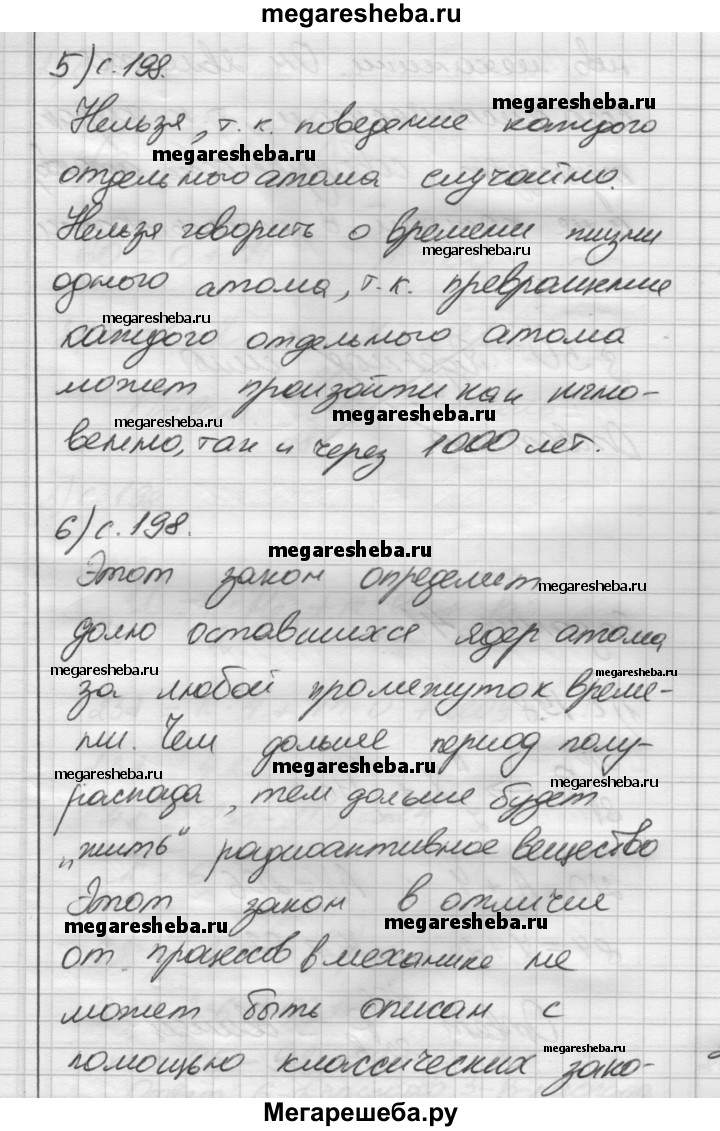 megaresheba.ru
5) с. 198.
megaresheba.ru
Нельзя, т. к. поведение каждого
megaresheba.ru
отдельного атома случайно.
Нельзя говорить о времени жизни
megaresheba.ru
одного атома, т. к. превращение
megaresheba.ru
каждого отдельного атома
может произойти как мгно-
megaresheba.ru
megaresheba.ru
венно, так и через 1000 лет.
6) с. 198.
megaresheba.ru
Этот закон определит
megaresheba.ru
долю оставшихся ядер атома
megaresheba.ru
за любой промежуток време-
ни. Чем дольше период полу-
megaresheba.ru
megaresheba.ru
megaresheba.ru
распада, тем дольше будет
„жить" радиоактивное вещество
Этот закон в отличие
megaresheba.ru
megaresheba.ru
от процессов в механике не
может быть описан с
megaresheba.ru
помощью классических зако-
Мегарешеба.ру